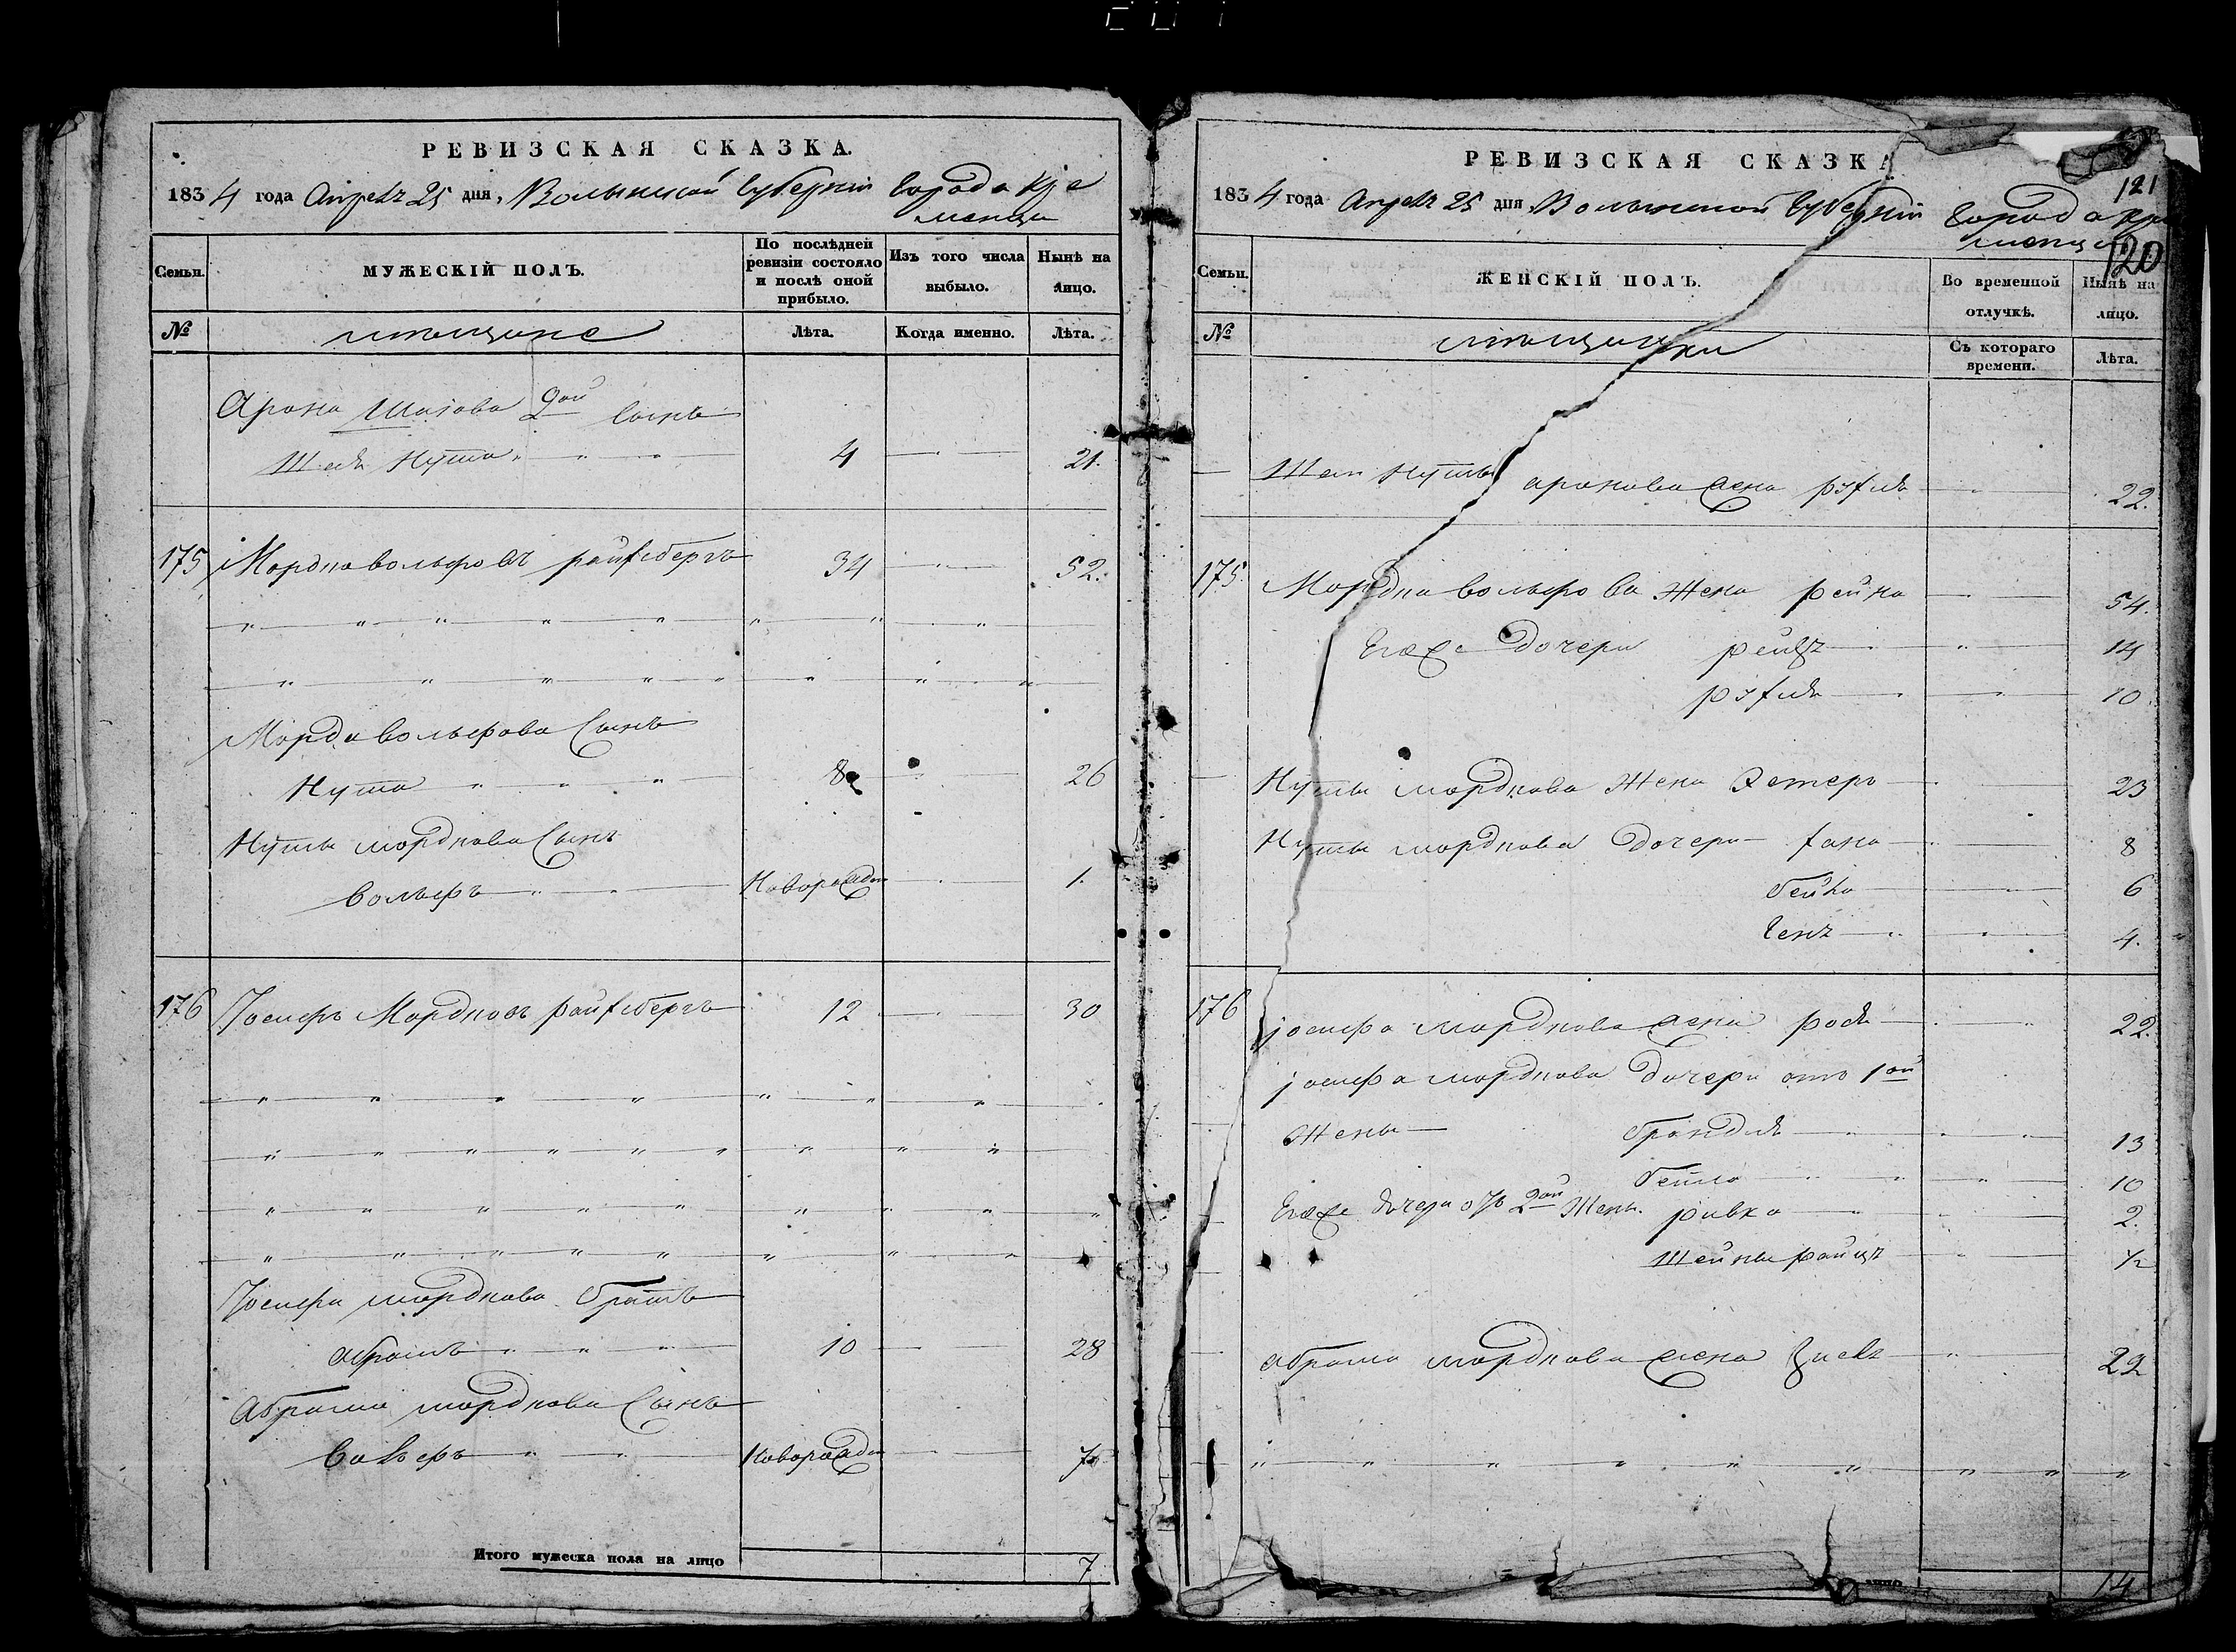 РЕВИЗСКАЯ СКАЗКА.
1834 года Апреля 25 дня, Волынской Губернии Города Кре
менца
Семьи. МУЖЕСКІЙ ПОЛЪ. По послѣдней ревизіи состояло и послѣ оной прибыло. Изъ того числа выбыло. Нынѣ на лицо.
№ мещане Лѣта. Когда именно. Лѣта.
Арона Шаіова 2ой Сынъ
Нута 4 21.
175 Мордко Вольфовъ 34 52.
Мордка Вольфова Сынъ
Нута 8 26
Нуты Мордкова Сынъ
Вольфъ Новорожден 1.
176 Іосифъ Мордковъ 12 30
Іосифа Мордкова братъ
Абрамъ 10 28
Абрама Мордкова Сынъ
Вольфъ Новорожден
Итого мужеска пола на лицо 7
РЕВИЗСКАЯ СКАЗКА
121
1834 года Апреля 25 дня, Волынской Губернии Города Кре
менца
120
Семьи. ЖЕНСКІЙ ПОЛЪ. Во временной отлучкѣ. Нынѣ на лицо.
№ мещанки Съ котораго времени. Лѣта.
Нуты Аронова жена 22.
175 Мордка Вольфова Жена Рейна 54.
Егоже Дочери 14
10
Нуты Мордкова Жена Эстеръ 23
Нуты Мордкова Дочери 8
6
4.
176 Іосифа Мордкова жена 22.
Іосифа Мордкова Дочери отъ 1ой
Жены Брандля 13
10
Егоже дочери отъ 2ой Жены Ривка 2.
Шейны 1/2
Абрама Мордкова жена 22
14